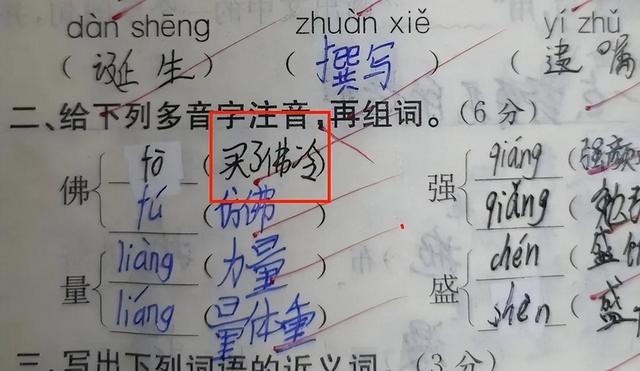 dàn shēng zhuǎn xiě yí zhǔ
(诞生) (撰写) (遗嘱
二、给下列多音字注音,再组词。(6分)
佛 fó (买了佛冷) 强 qiáng (强颜
fú (仿佛) qiǎng (
量 liàng (力量) 盛 chén (盛
liáng (量体重) shèn (盛
三、写出下列词语的近义词。(3分)